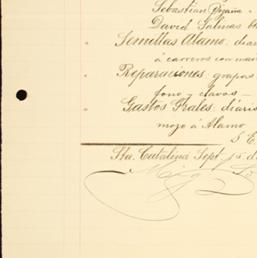 Sebastian Ozaña
David Salinas
Semillas Alamo, diar
á carreros con man
Reparaciones, grapas
fono y clavos —
Gastos Grales, diaris
mozo á Alamo
S E
Sta. Catalina Sept 15 d